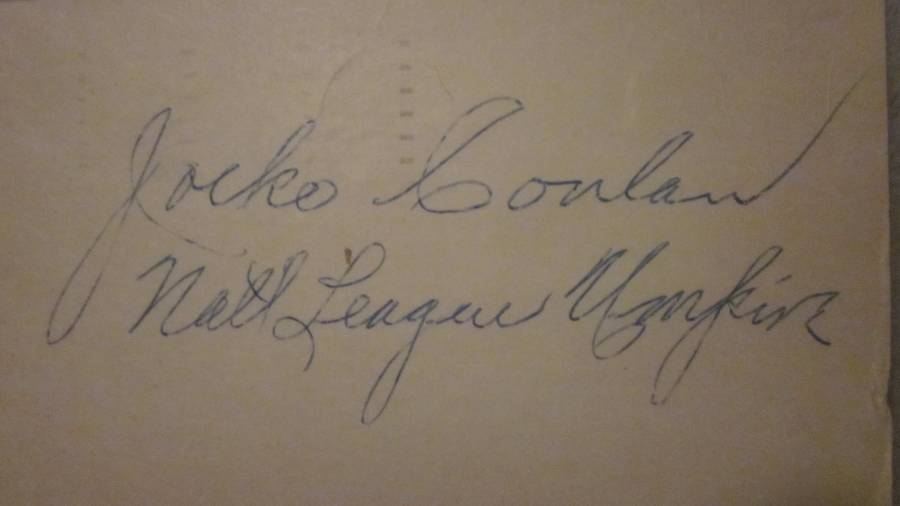 Jocko Conlan
Natl League Umpire